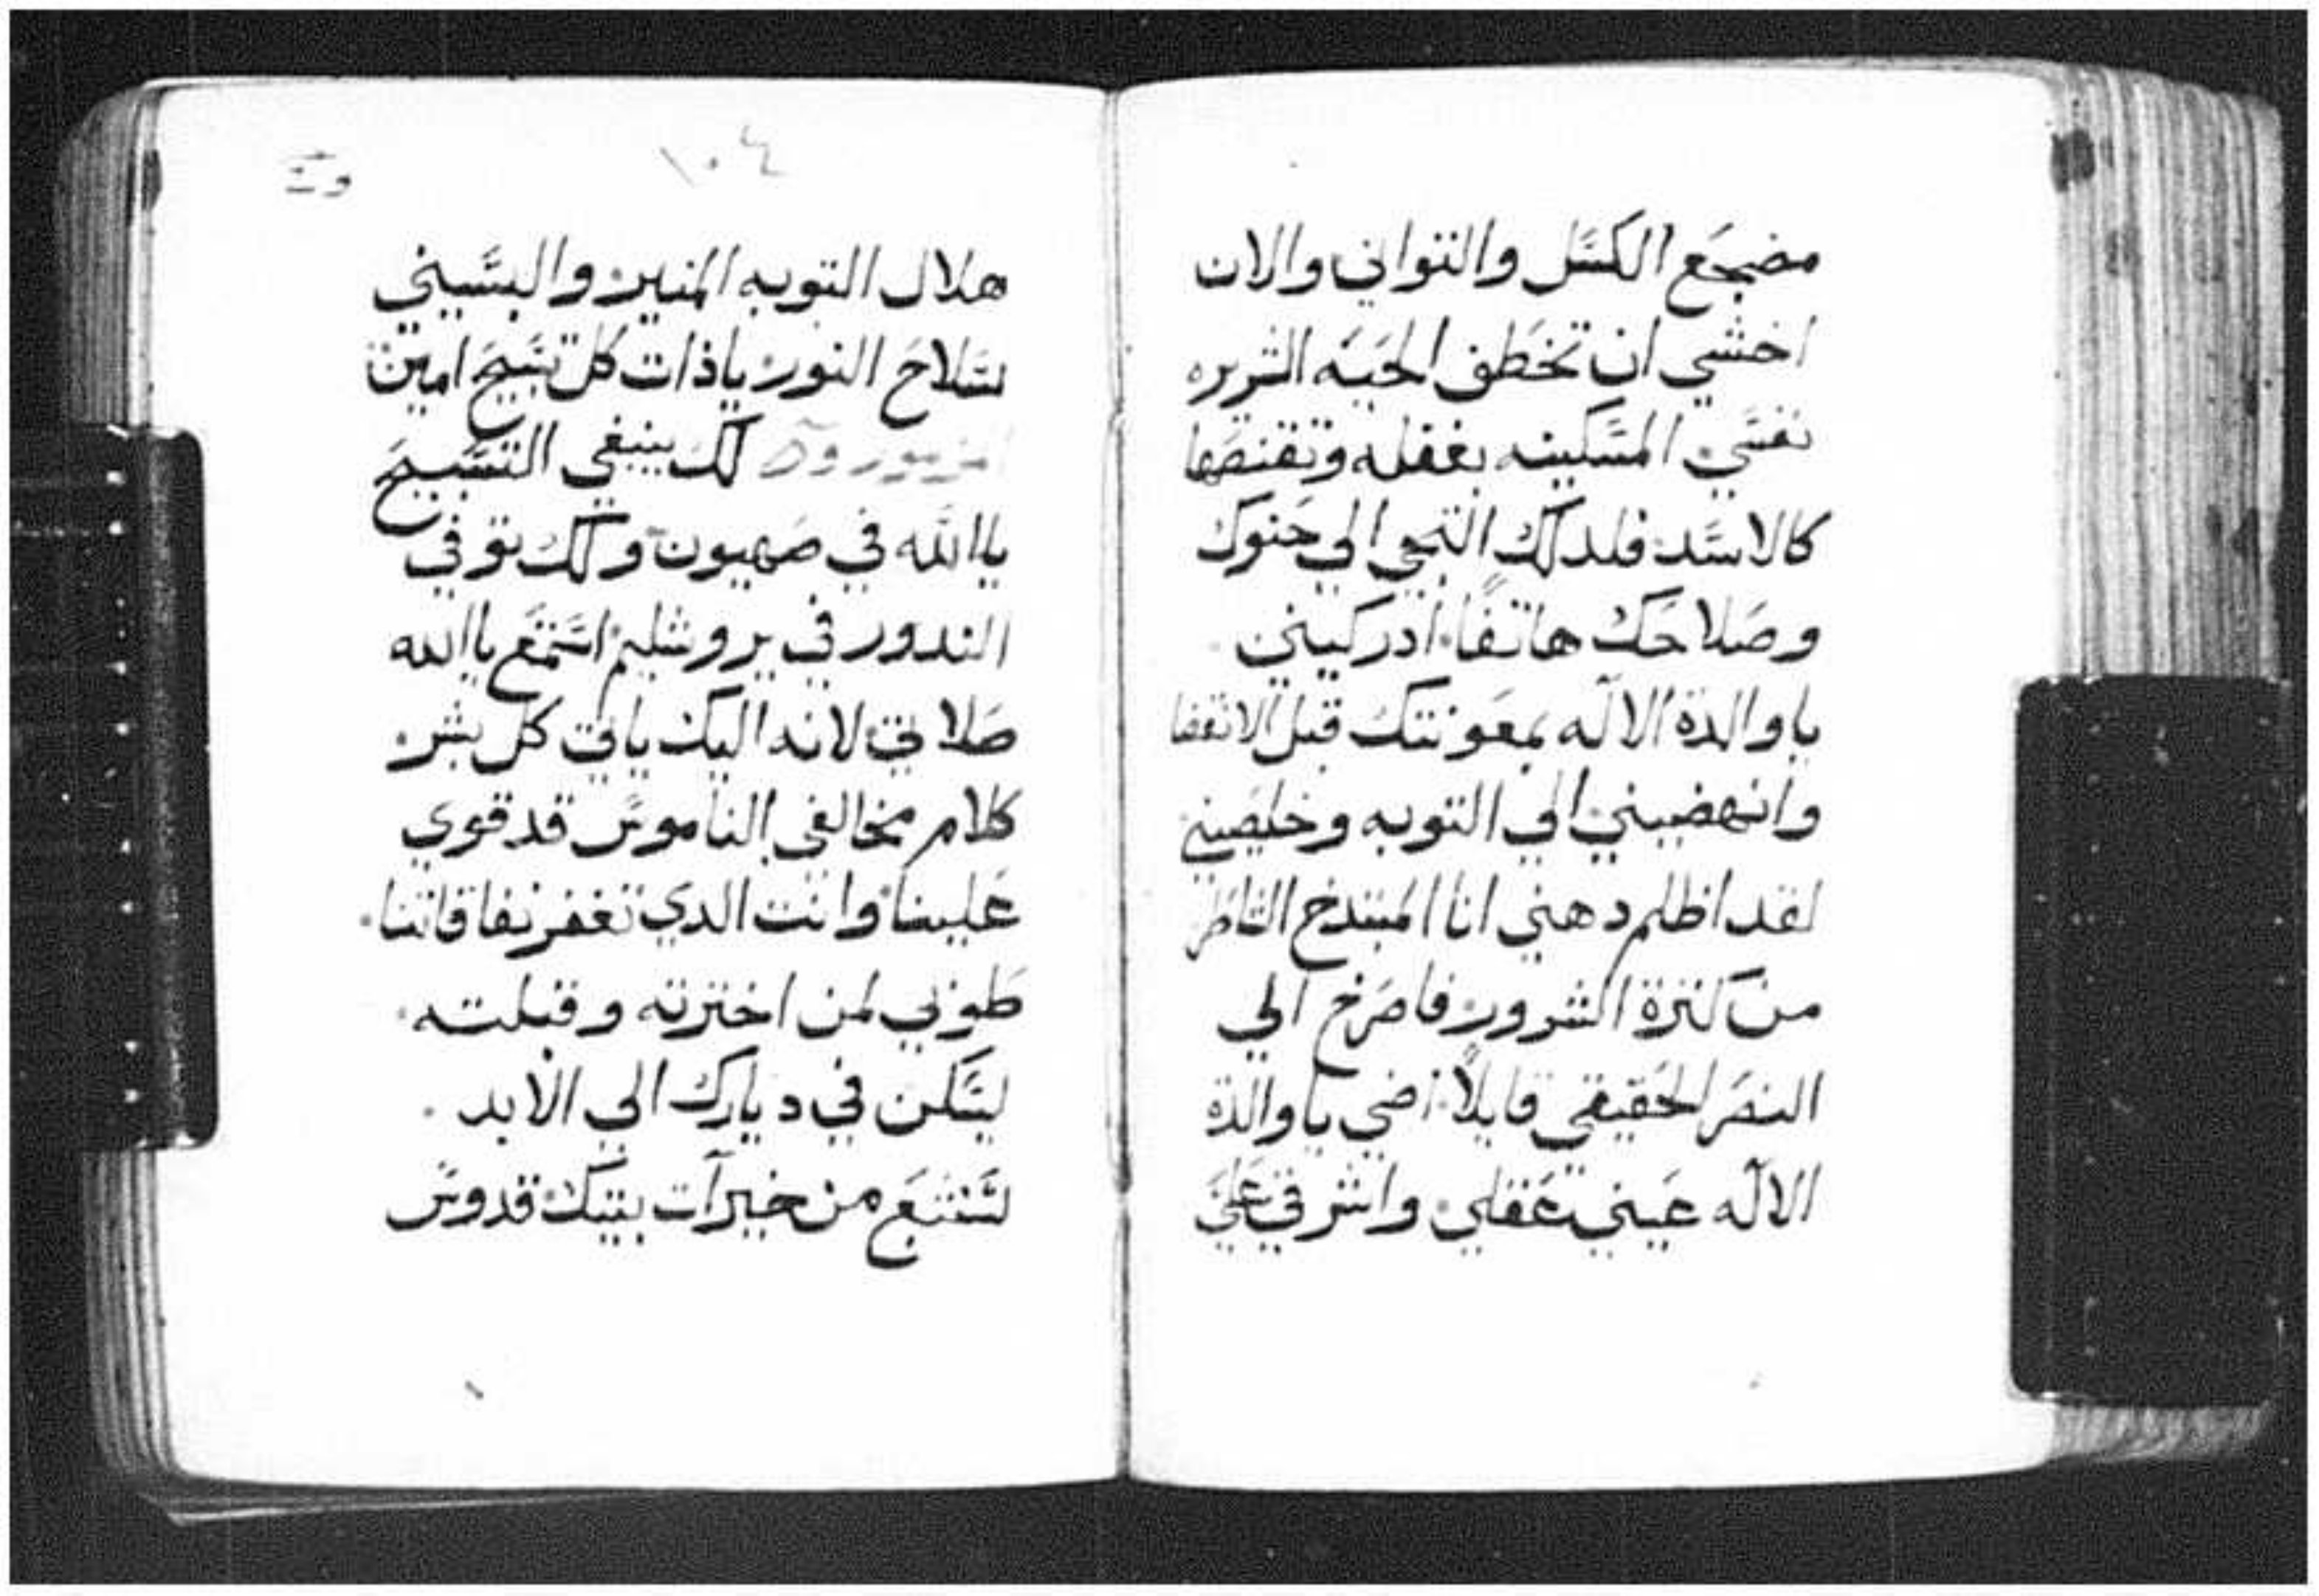 مضجع الكسل والتواني والان
اخشي ان تخطف الحيه الشريره
نفسي المسكينه بغفله وتقنصها
كالاسد فلدلك التجي الي حنوك
وصلاحك هاتفًا ادركيني
ياوالدة الاله بمعونتك قبل الانقضا
وانهضيني الي التوبه وخلصيني
لقد اظلم دهني انا المبتدخ
من كثرة الشرور فاصرخ الي
قايلاً اضي ياوالدة
الاله عيني عقلي واشرقي علي
١٠٤
هلال التوبه المنير والبسيني
سلاح النور ياذات كل تسبيح امين
لك ينبغي التسبيح
ياالله في صهيون ولك توفي
الندور في يروشليم استمع ياالله
صلاتي لانه اليك ياتي كل بشر
كلام مخالفي الناموس قد قوي
علينا وانت الدي تغفر نفاقاتنا
طوبي لمن اخترته وقبلته
ليسكن في ديارك الي الابد
لنشبع من خيرات بيتك قدوس